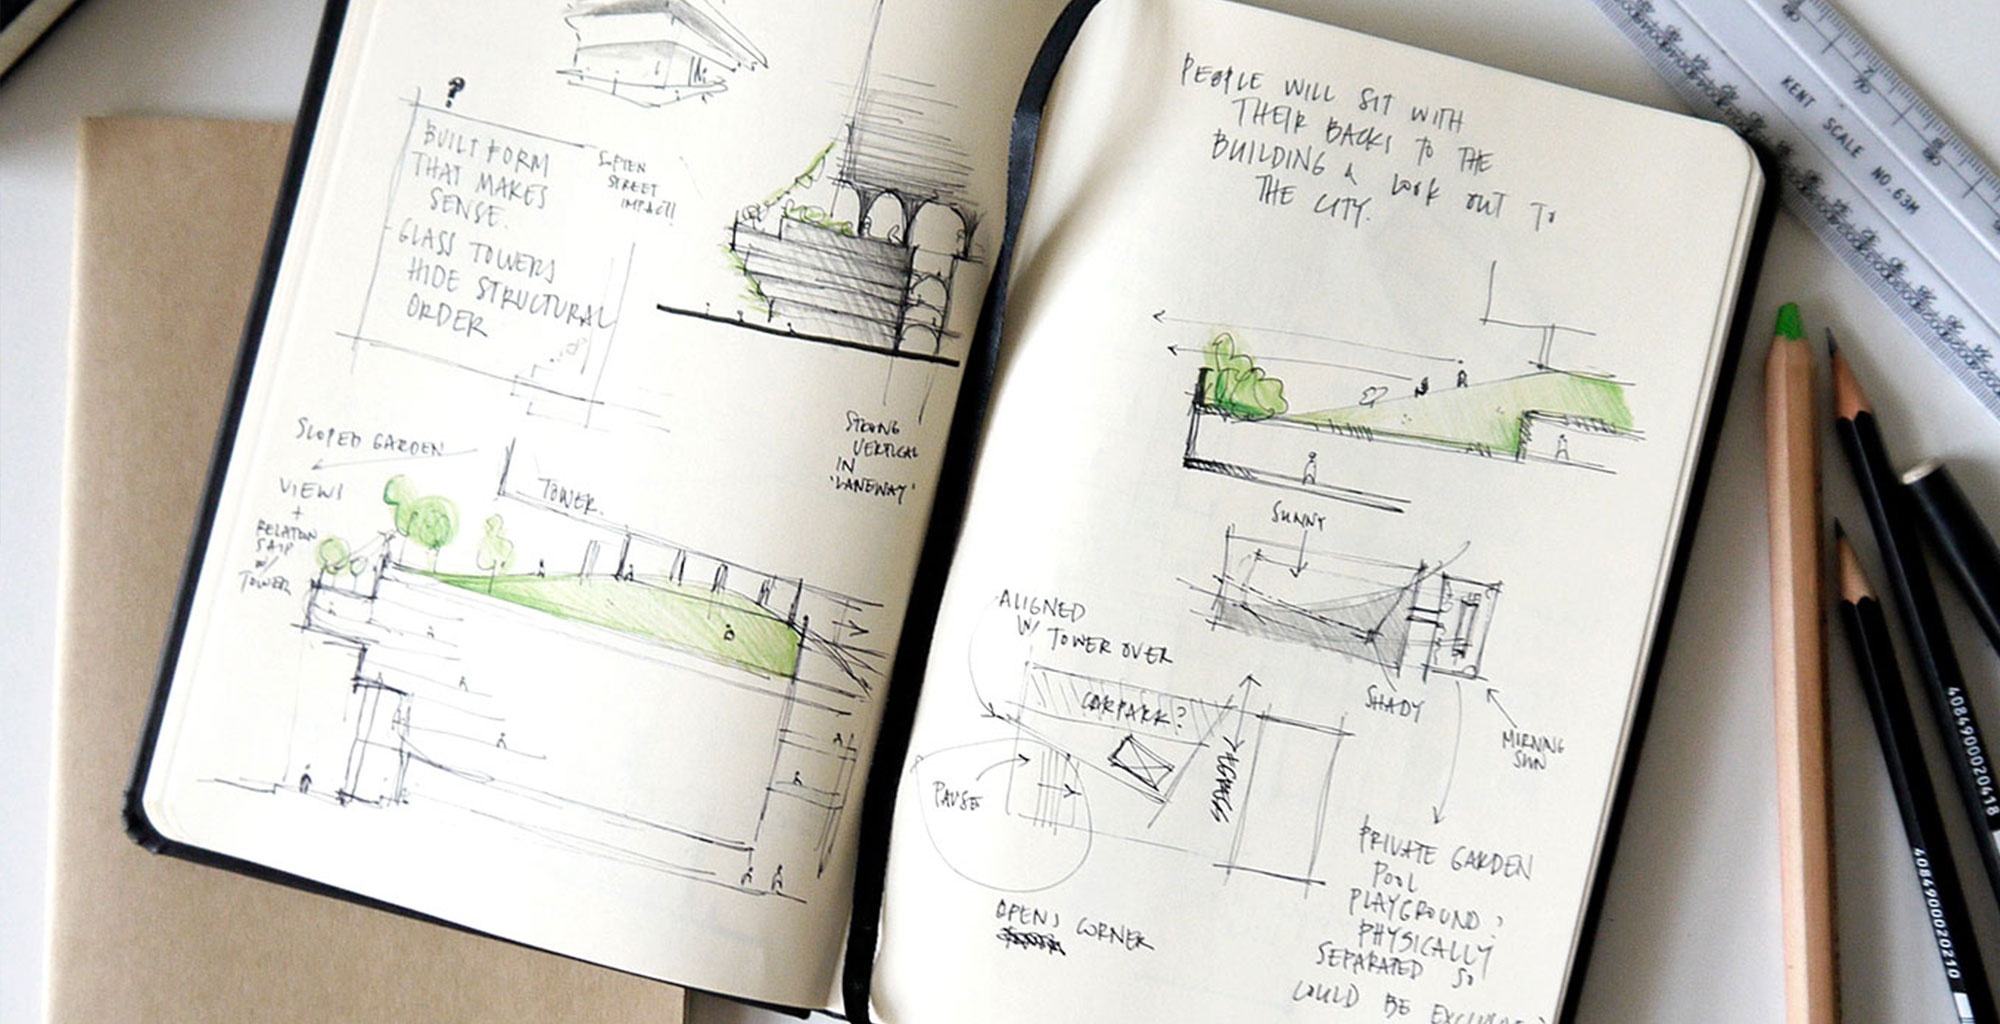 ?
BUILT FORM
THAT MAKES
SENSE.
GLASS TOWERS
HIDE STRUCTURAL
ORDER
SOFTEN
STREET
IMPACT!
STRONG
VERTICAL
IN
'LANEWAY'
SLOPED GARDEN
VIEWS
+
RELATION
SHIP
W/
TOWER
TOWER.
PEOPLE WILL SIT WITH
THEIR BACKS TO THE
BUILDING & LOOK OUT TO
THE CITY.
SUNNY
SHADY
MORNING
SUN
ALIGNED
W/ TOWER OVER
CARPARK?
ACCESS
PAUSE
OPENS CORNER
PRIVATE GARDEN
POOL
PLAYGROUND?
PHYSICALLY
SEPARATED SO
COULD BE
KENT SCALE NO.63M
4084900020418
4084900020210